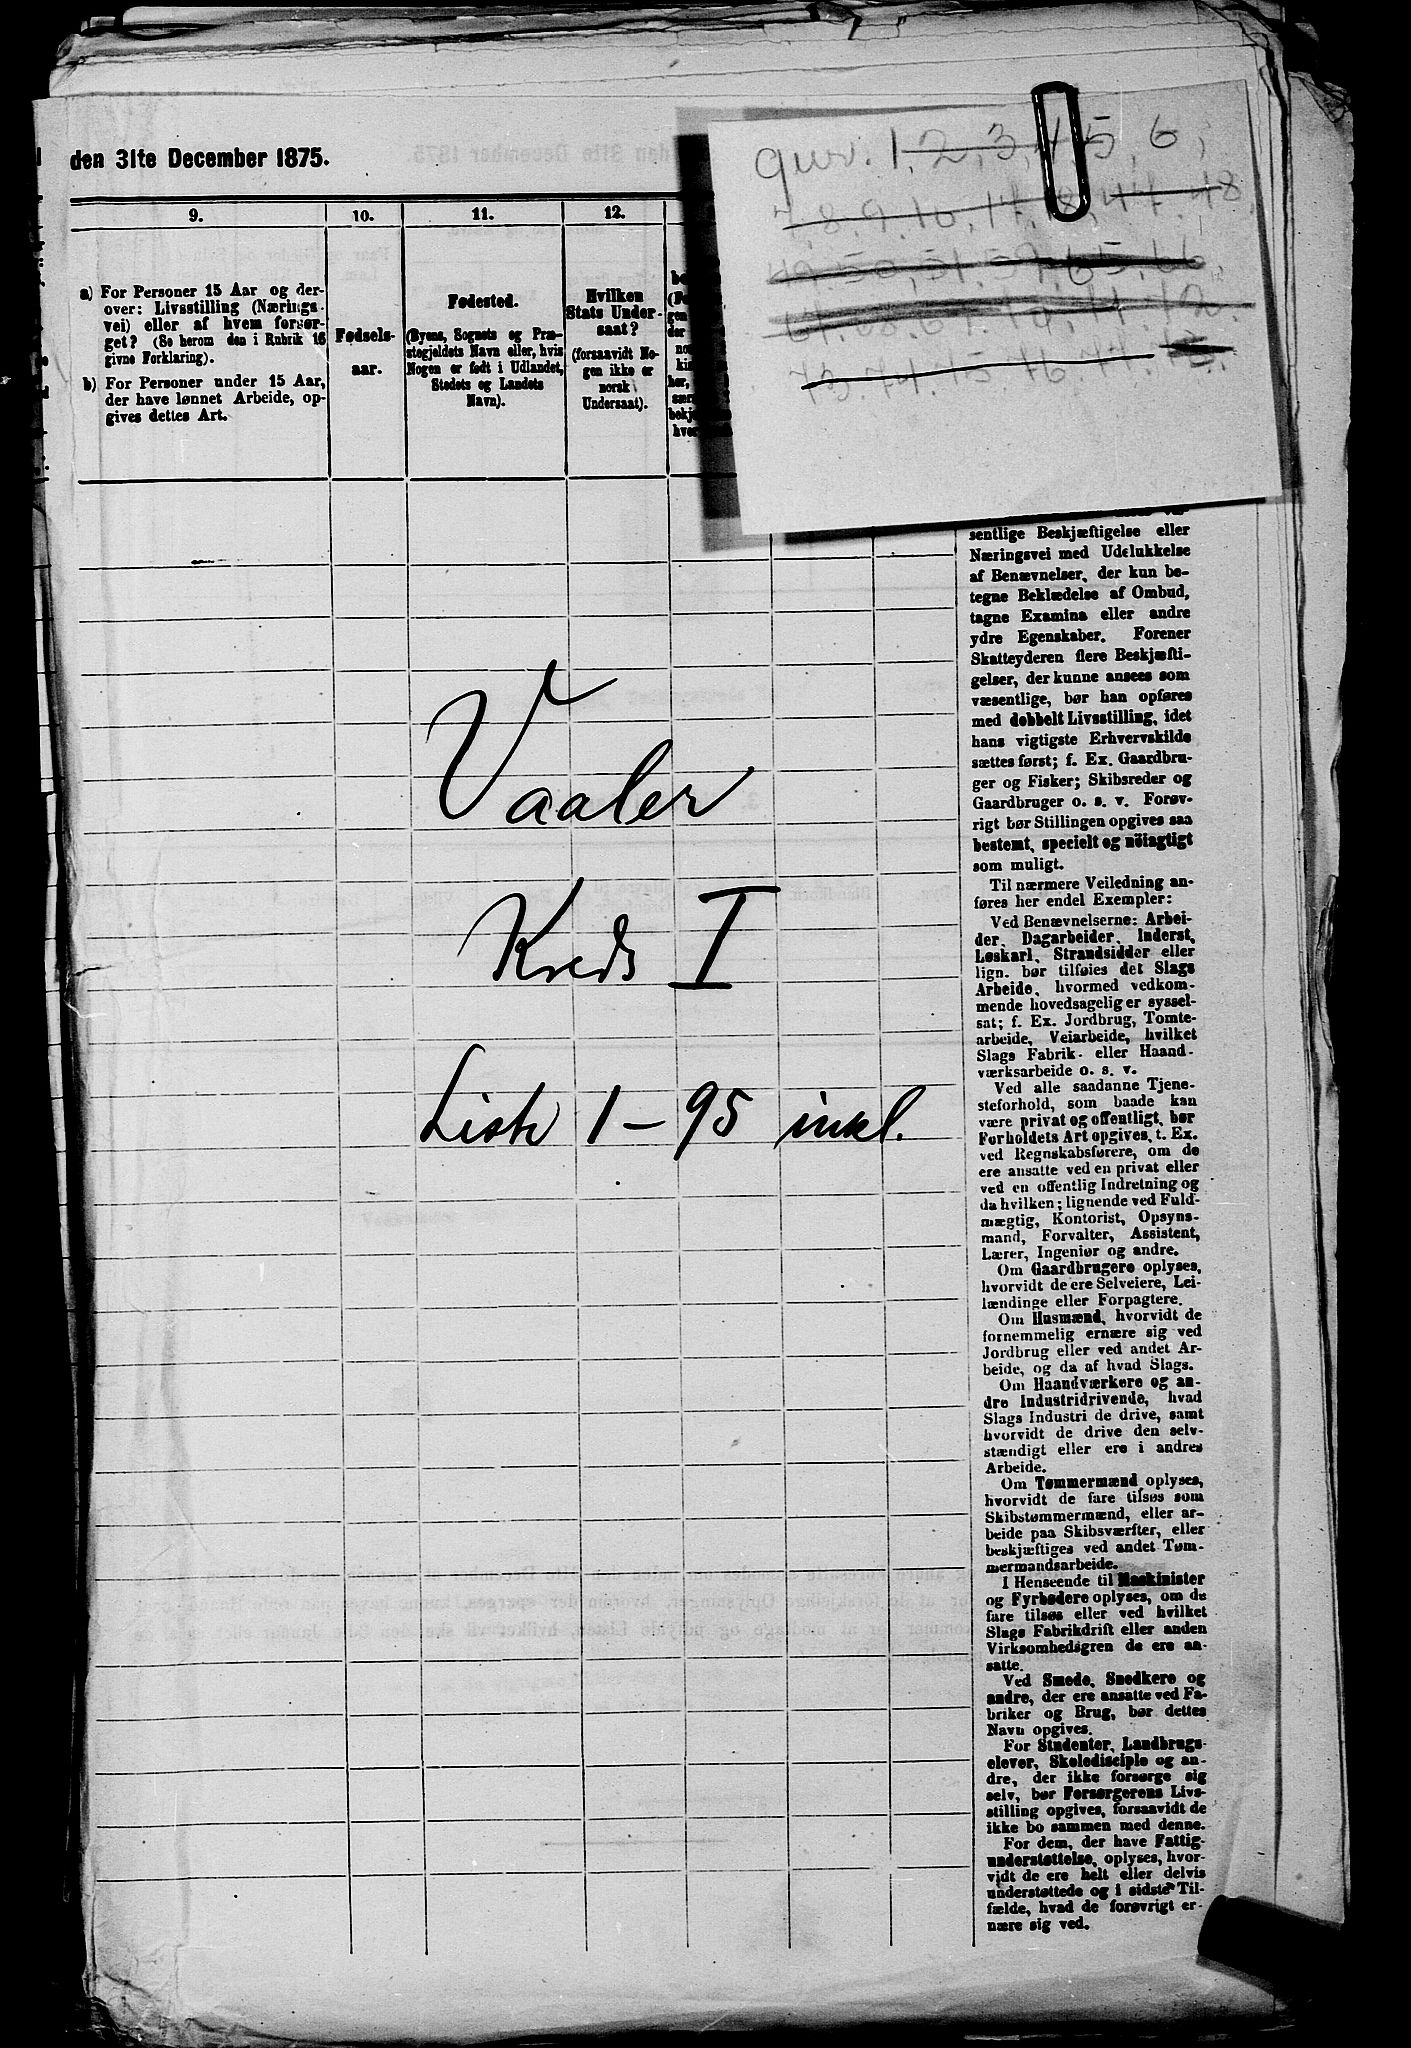 den 31te December 1875.
gnr. 1, 2, 3, 4, 5, 6,
7, 8, 9, 10, 17, 8, 47, 48,
49, 50, 51, 59, 65, 66
73. 74. 5 76. 77.
9.
10.
11.
12.
a) For Personer 15 Aar og der-
over: Livsstilling (Nærings-
vei) eller af hvem forsør-
get? (Se herom den i Rubrik 16
givne Forklaring).
b) For Personer under 15 Aar,
der have lønnet Arbeide, op-
gives dettes Art.
Fødsels-
aar.
Fødested.
(Byens, Sognets og Præ-
stegjeldets Navn eller, hvis
Nogen er født i Udlandet,
Stedets og Landets
Navn).
Hvilken
Stats Under-
saat?
(forsaavidt No-
gen ikke er
norsk
Undersaat).
Vaaler
Kreds I
Liste 1 – 95 inkl.
sentlige Beskjæftigelse eller
Næringsvei med Udelukkelse
af Benævnelser, der kun be-
tegne Beklædelse af Ombud,
tagne Examina eller andre
ydre Egenskaber. Forener
Skatteyderen flere Beskjæfti-
gelser, der kunne ansees som
væsentlige, bør han opføres
med dobbelt Livsstilling, idet
hans vigtigste Erhvervskilde
sættes først; f. Ex. Gaardbru-
ger og Fisker; Skibsreder og
Gaardbruger o. s. v. Forøv-
rigt bør Stillingen opgives saa
bestemt, specielt og nöiagtigt
som muligt.
Til nærmere Veiledning an-
føres her endel Exempler:
Ved Benævnelserne: Arbei-
der, Dagarbeider, Inderst,
Løskarl, Strandsidder eller
lign. bør tilføies det Slags
Arbeide, hvormed vedkom-
mende hovedsagelig er syssel-
sat; f. Ex. Jordbrug, Tomte-
arbeide, Veiarbeide, hvilket
Slags Fabrik- eller Haand-
værksarbeide o. s. v.
Ved alle saadanne Tjene-
steforhold, som baade kan
være privat og offentligt, bør
Forholdets Art opgives, t. Ex.
ved Regnskabsførere, om de
ere ansatte ved en privat eller
ved en offentlig Indretning og
da hvilken; lignende ved Fuld-
mægtig, Kontorist, Opsyns-
mand, Forvalter, Assistent,
Lærer, Ingeniør og andre.
Om Gaardbrugere oplyses,
hvorvidt de ere Selveiere, Lei-
lændinge eller Forpagtere.
Om Husmænd, hvorvidt de
fornemmelig ernære sig ved
Jordbrug eller ved andet Ar-
beide, og da af hvad Slags.
Om Haandværkere og an-
dre Industridrivende, hvad
Slags Industri de drive, samt
hvorvidt de drive den selv-
stændigt eller ere i andres
Arbeide.
Om Tømmermænd oplyses,
hvorvidt de fare tilsøs som
Skibstømmermænd, eller ar-
beide paa Skibsværfter, eller
beskjæftiges ved andet Tøm-
mermandsarbeide.
I Henseende til Maskinister
og Fyrbødere oplyses, om de
fare tilsøs eller ved hvilket
Slags Fabrikdrift eller anden
Virksomhedsgren de ere an-
satte.
Ved Smede, Snedkere og
andre, der ere ansatte ved Fa-
briker og Brug, bør dettes
Navn opgives.
For Studenter, Landbrugs-
elever, Skoledisciple og an-
dre, der ikke forsørge sig
selv, bør Forsørgerens Livs-
stilling opgives, forsaavidt de
ikke bo sammen med denne.
For dem, der have Fattig-
understøttelse, oplyses, hvor-
vidt de ere helt eller delvis
understøttede og i sidste Til-
fælde, hvad de forøvrigt er-
nære sig ved.